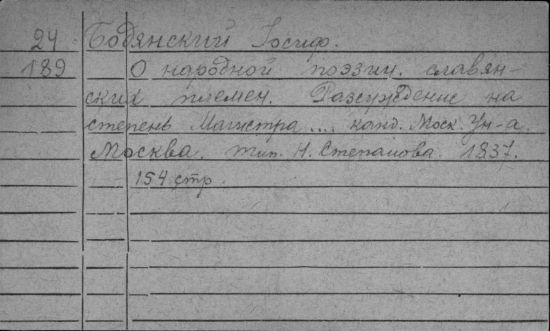 24 Бодянский Iосиф.
189 О народной поэзии славян-
ских племен. Разсуждение на
степень Магистра .... канд. Моск. Ун-а.
Москва. тип. Н. Степанова. 1837.
154 стр.